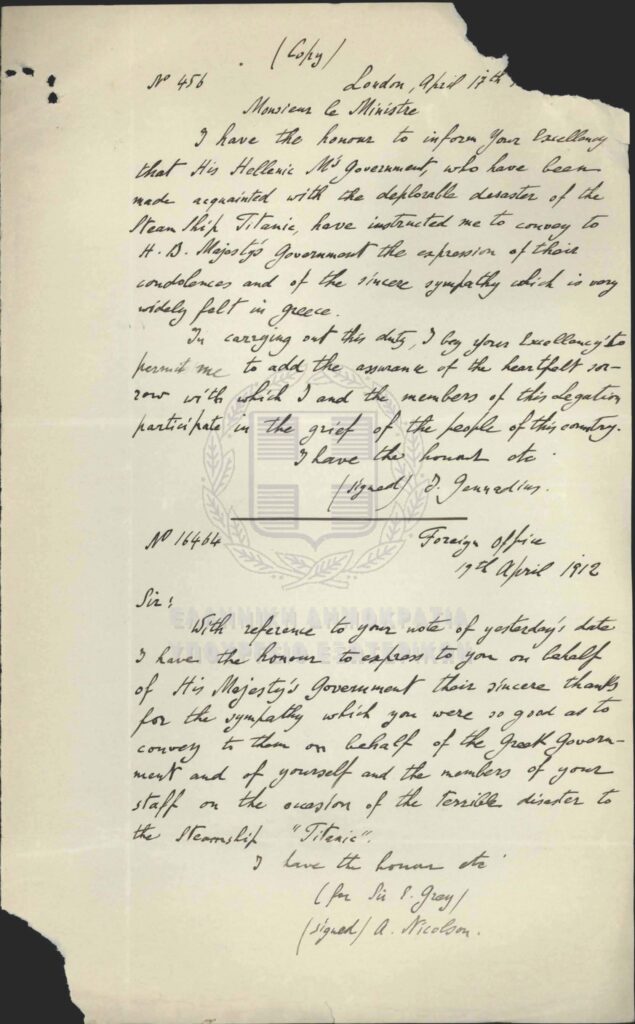 (Copy)
Nº 456 London, April 17th
Monsieur le Ministre
I have the honour to inform Your Excellency
that His Hellenic My's Government, who have been
made acquainted with the deplorable desaster of the
Steam Ship Titanic, have instructed me to convey to
H. B. Majesty's Government the expression of their
condolences and of the sincere sympathy which is very
widely felt in Greece.
In carrying out this duty, I beg Your Excellency to
permit me to add the assurance of the heartfelt sor-
row with which I and the members of this Legation
participate in the grief of the people of this country.
I have the honour etc
(signed) J. Gennadius.
Nº 16464 Foreign Office
19th April 1912
Sir:
ΕΛΛΗΝΙΚΗ ΔΗΜΟΚΡΑΤΙΑ
With reference to your note of yesterday's date
ΥΠΟΥΡΓΕΙΟ ΕΞΩΤΕΡΙΚΩΝ
I have the honour to express to you on behalf
of His Majesty's Government their sincere thanks
for the sympathy which you were so good as to
convey to them on behalf of the Greek Govern-
ment and of yourself and the members of your
staff on the occasion of the terrible disaster to
the Steamship "Titanic".
I have the honour etc
(for Sir E. Grey)
(signed) A. Nicolson.